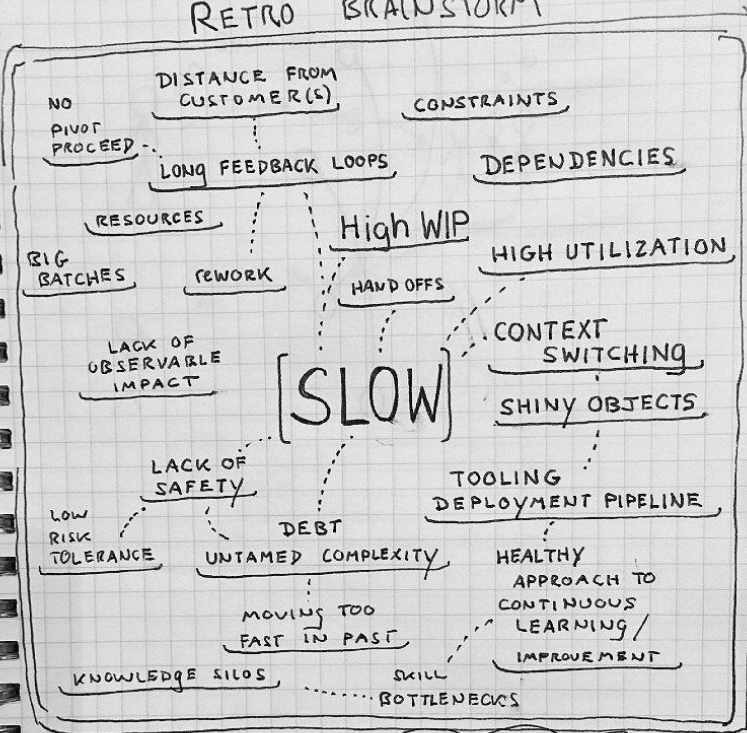 RETRO BRAINSTORM
DISTANCE FROM
CUSTOMER(S)
CONSTRAINTS
NO
PIVOT
PROCEED
LONG FEEDBACK LOOPS
DEPENDENCIES
RESOURCES
High WIP
BIG
BATCHES
REWORK
HAND OFFS
HIGH UTILIZATION
LACK OF
OBSERVABLE
IMPACT
[SLOW]
CONTEXT
SWITCHING
SHINY OBJECTS
LACK OF
SAFETY
TOOLING
DEPLOYMENT PIPELINE
LOW
RISK
TOLERANCE
DEBT
UNTAMED COMPLEXITY
HEALTHY
APPROACH TO
CONTINUOUS
LEARNING/
IMPROVEMENT
MOVING TOO
FAST IN PAST
KNOWLEDGE SILOS
SKILL
BOTTLENECKS